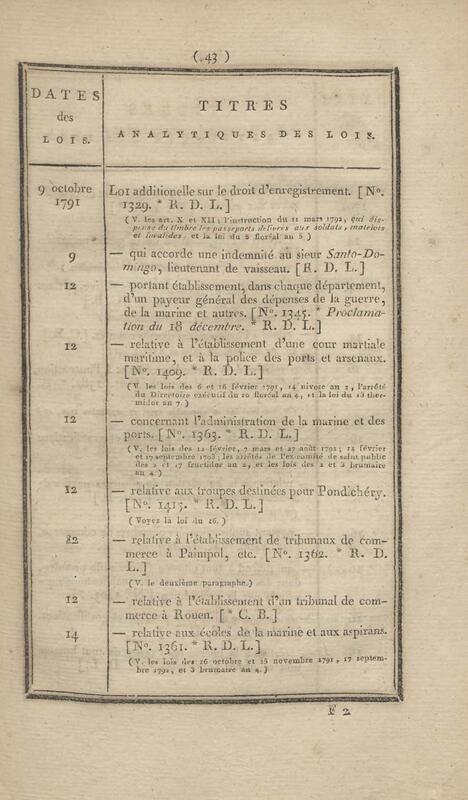 ( 43 )
DATES
des
LOIS.
TITRES
ANALYTIQUES DES LOIS.
9 octobre
1791
Loi additionelle sur le droit d'enregistrement. [ No.
1329. * R. D. L. ]
( V. les art. X et XII; l'instruction du 11 mars 1792, qui dis-
pense du timbre les passeports délivrés aux soldats, matelots
et invalides, et la loi du 8 floréal an 5 )
9
— qui accorde une indemnité au sieur Santo-Do-
mingo, lieutenant de vaisseau. [ R. D. L. ]
12
— portant établissement, dans chaque département,
d'un payeur général des dépenses de la guerre,
de la marine et autres. [ No. 1345. * Proclama-
tion du 18 décembre. * R. D. L. ]
12
— relative à l'établissement d'une cour martiale
maritime, et à la police des ports et arsenaux.
[ No. 1409. * R. D. L. ]
( V. les lois des 6 et 16 février 1791, 14 nivose an 2, l'arrêté
du Directoire exécutif du 10 floréal an 4, et la loi du 13 ther-
midor an 7. )
12
— concernant l'administration de la marine et des
ports. [ No. 1363. * R. D. L. ]
( V. les lois des 12 février, 7 mars et 27 août 1792; 14 février
et 17 septembre 1793; les arrêtés de l'ex-comité de salut public
des 2 et 17 fructidor an 2, et les lois des 2 et 3 brumaire
an 4 )
12
— relative aux troupes destinées pour Pondichéry.
[ No. 1415. * R. D. L. ]
( Voyez la loi du 16. )
12
— relative à l'établissement de tribunaux de com-
merce à Paimpol, etc. [ No. 1362. * R. D.
L. ]
( V. le deuxième paragraphe. )
12
— relative à l'établissement d'un tribunal de com-
merce à Rouen. [ * C. B. ]
14
— relative aux écoles de la marine et aux aspirans.
[ No. 1361. * R. D. L. ]
( V. les lois des 16 octobre et 15 novembre 1791, 17 septem-
bre 1792, et 3 brumaire an 4. )
F 2